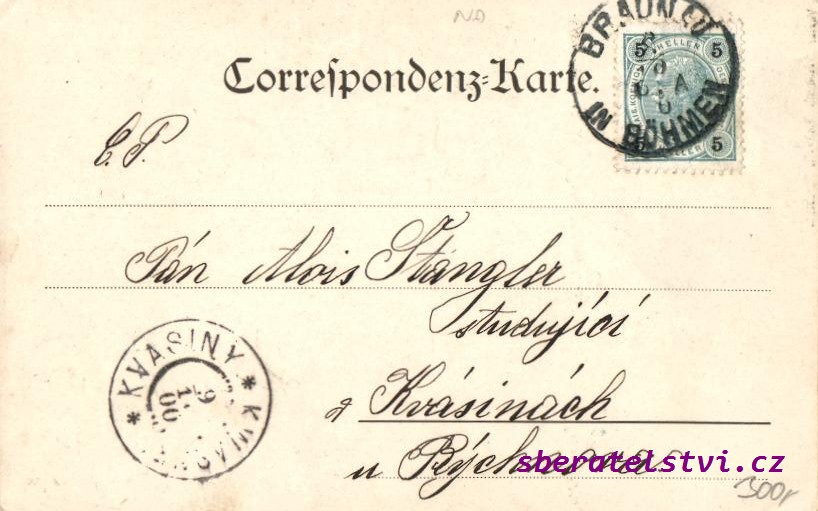 ND
Correspondenz-Karte.
BRAUNAU
IN BÖHMEN
5 HELLER 5
5 HELLER 5
E. P.
Pán Alois Stangler
studující
z Kvásinách
u Rychnova
KVASINY * KWAS
9
00
sberatelstvi.cz
300,